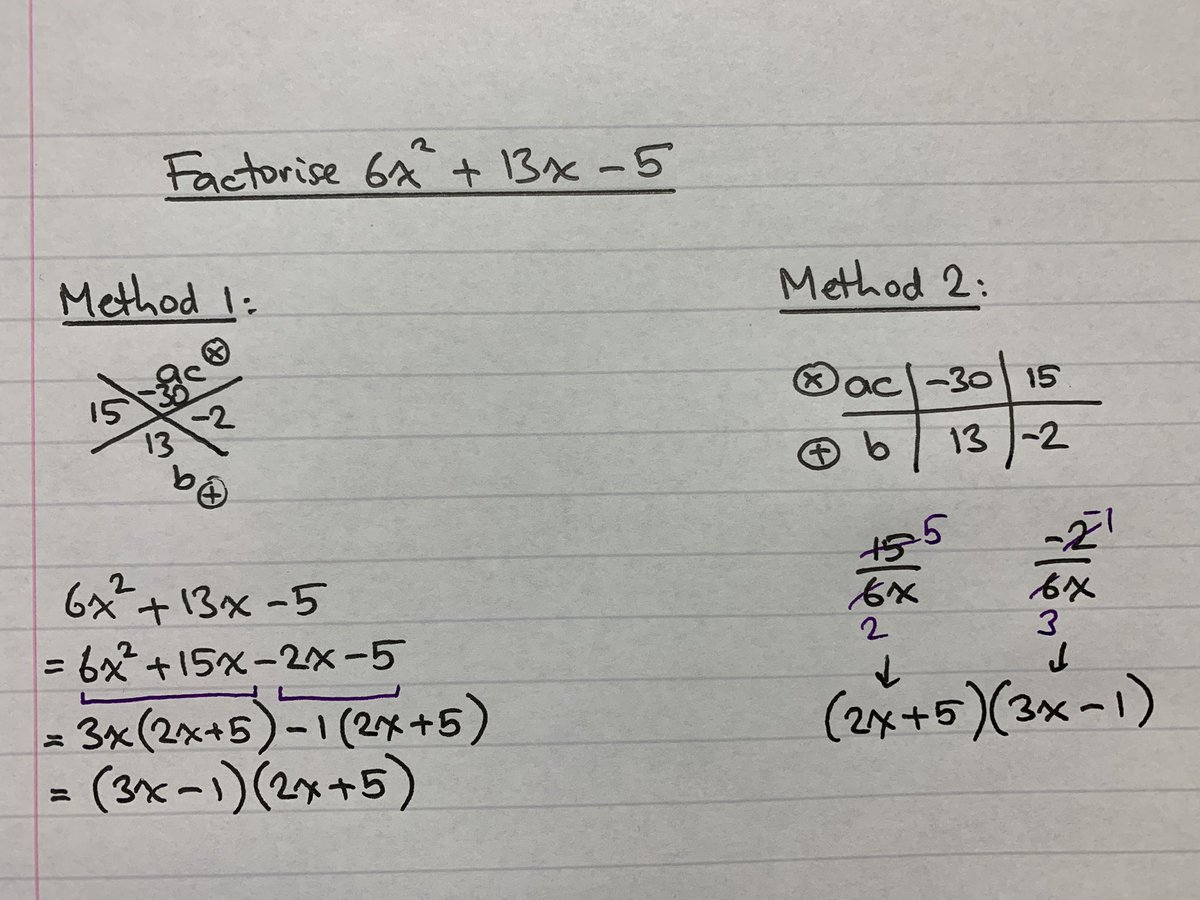 Factorise 6x² + 13x - 5
Method 1:
ac ⊗
-30
15 -2
13
b ⊕
6x² + 13x - 5
= 6x² + 15x - 2x - 5
= 3x(2x+5) - 1(2x+5)
= (3x-1)(2x+5)
Method 2:
⊗ ac | -30 | 15
⊕ b | 13 | -2
15 5 -2 -1
6x 6x
2 3
↓ ↓
(2x+5)(3x-1)